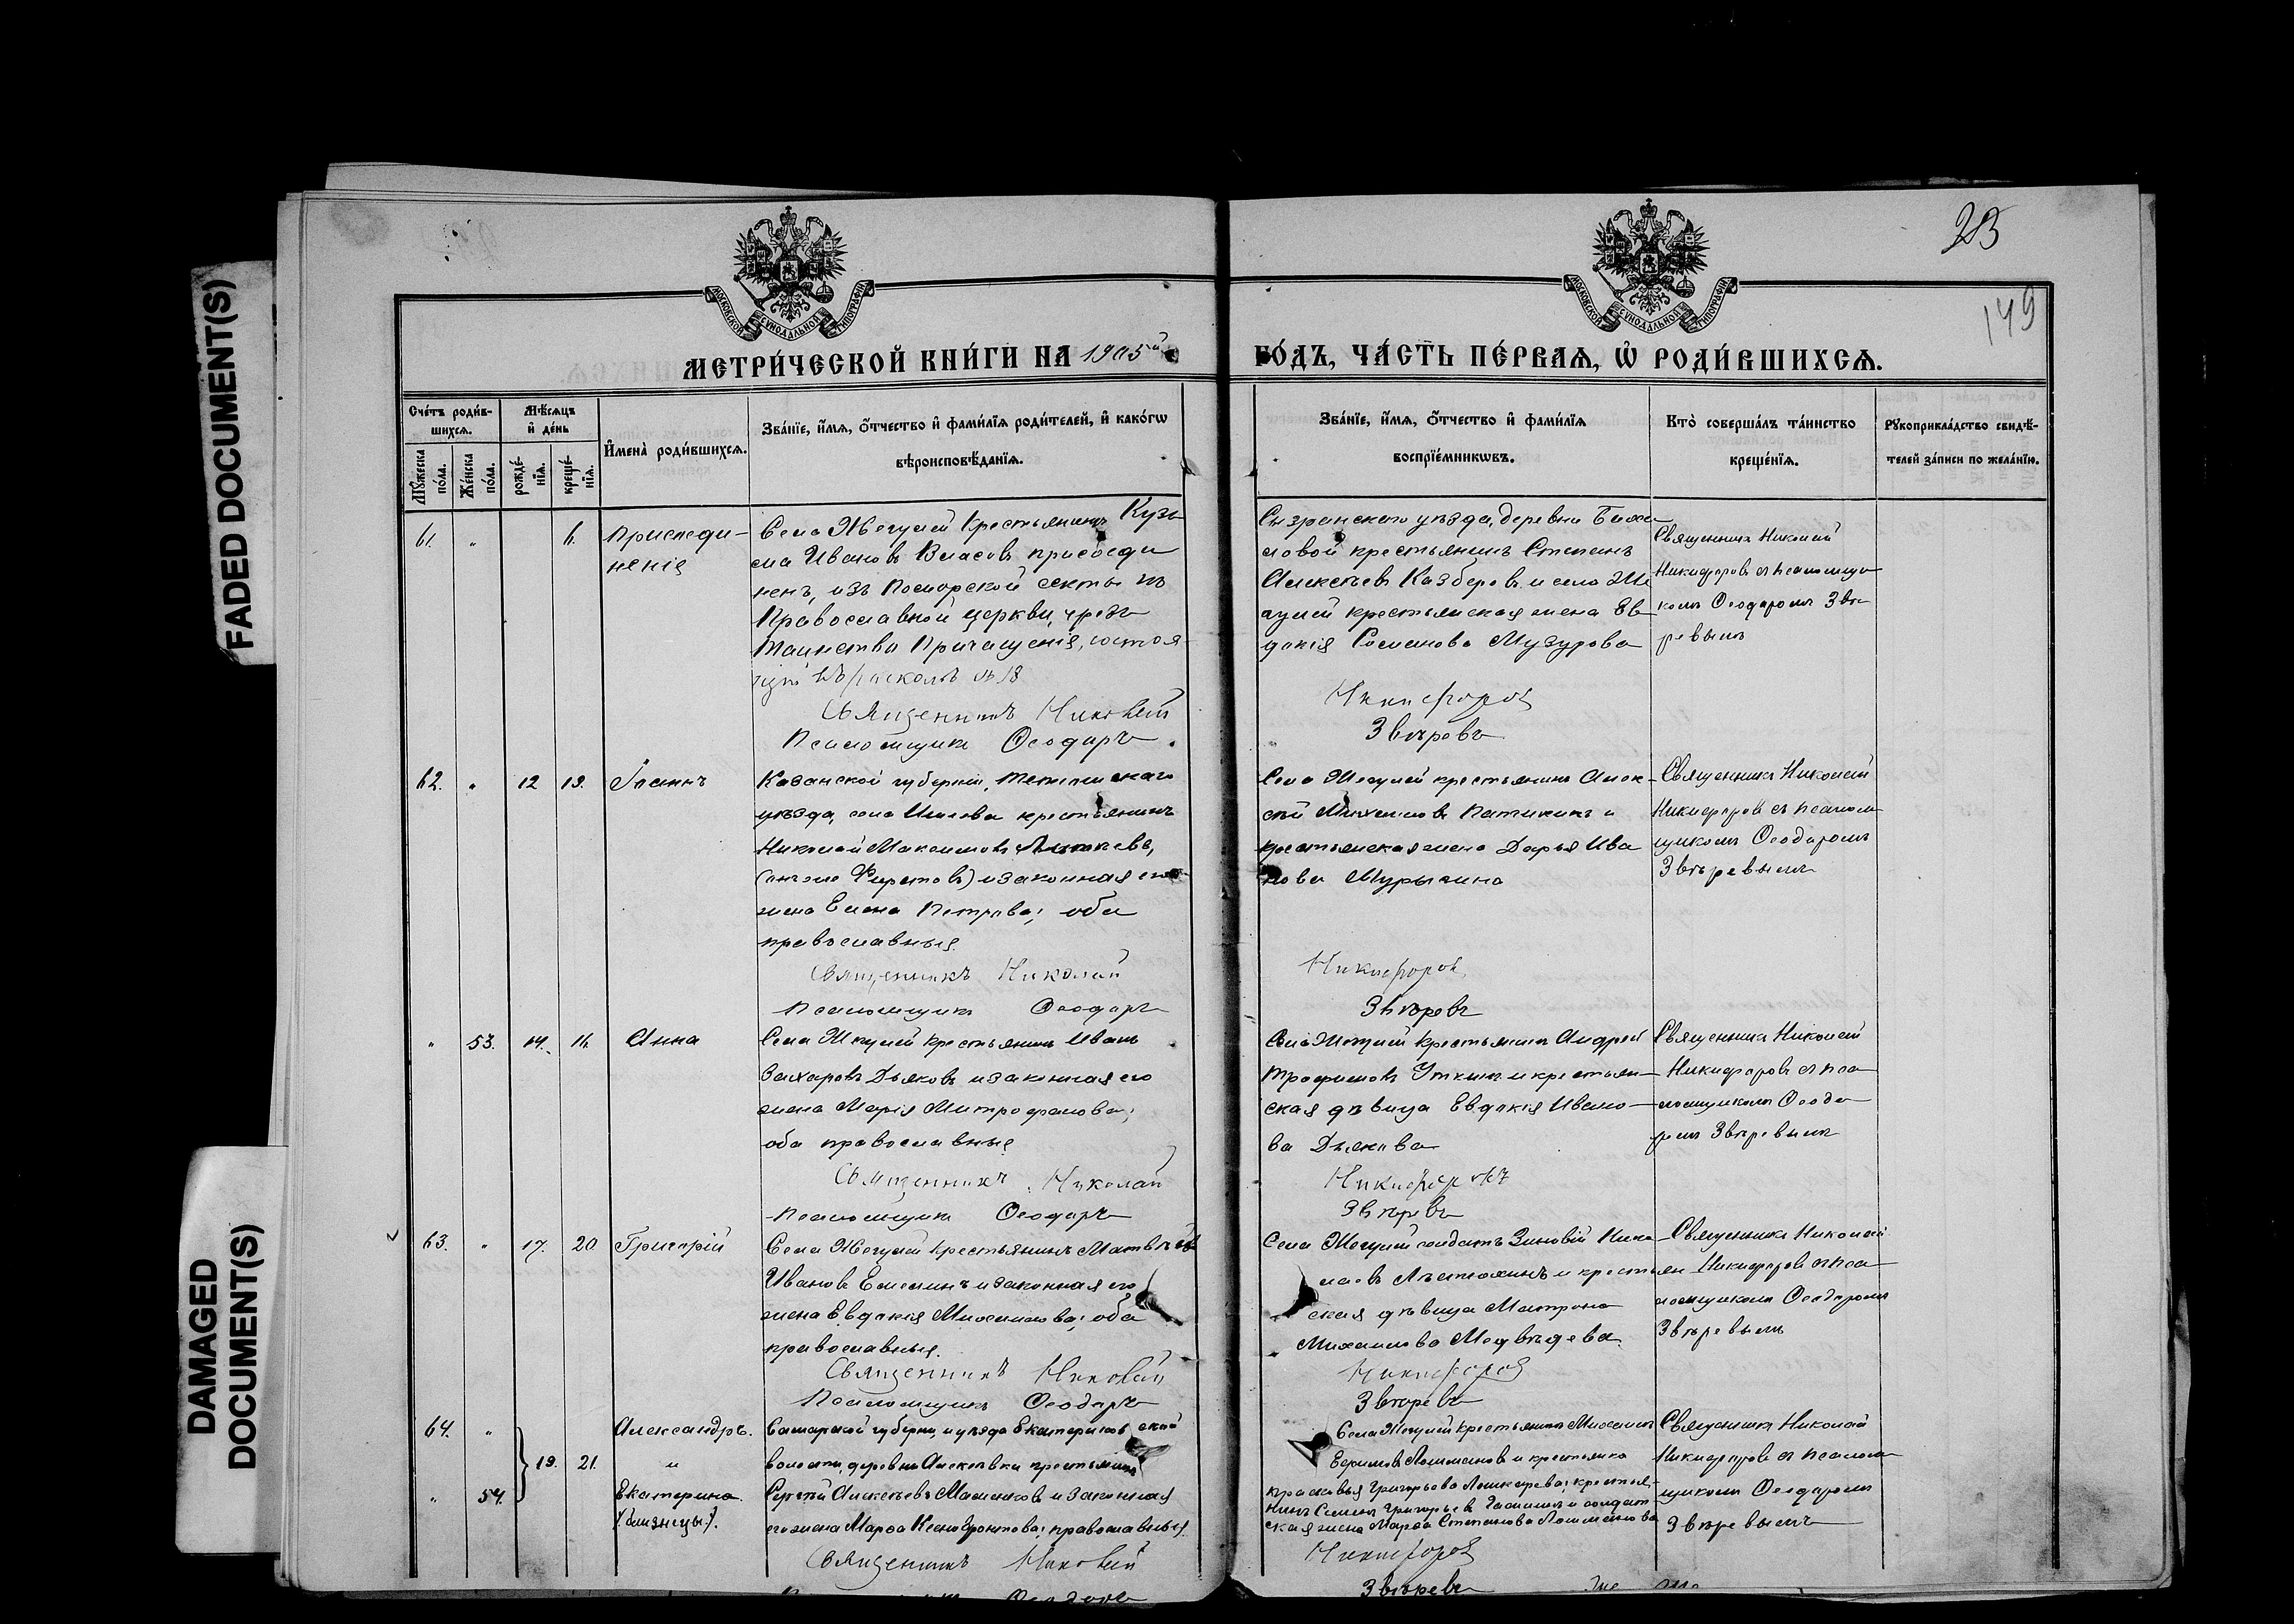 FADED DOCUMENT(S)
DAMAGED
DOCUMENT(S)
23
149
МОСКОВСКОЙ СѴНОДАЛЬНОЙ ТИПОГРАФІИ
МОСКОВСКОЙ СѴНОДАЛЬНОЙ ТИПОГРАФІИ
МЕТРИ́ЧЕСКОЙ КНИ́ГИ НА 1905й
ГО́ДЪ, ЧА́СТЬ ПЕ́РВАѦ, Ѡ РОДИ́ВШИХСѦ.
Сче́тъ роди́в-
шихсѧ.
Мѣ́сѧцъ
и҆ де́нь
Мꙋ́жеска
по́ла.
Же́нска
по́ла.
рожде́-
нїѧ.
креще́-
нїѧ.
И҆мена̀ роди́вшихсѧ.
Зва́нїе, и҆́мѧ, ѻ҆́тчество и҆ фами́лїѧ роди́телей, и҆ како́гѡ
вѣроисповѣ́данїѧ.
Зва́нїе, и҆́мѧ, ѻ҆́тчество и҆ фами́лїѧ
воспрїе́мникѡвъ.
Кто̀ соверша́лъ та́инство
креще́нїѧ.
Рꙋкоприкла́дство свидѣ́-
телей за́писи по жела́нїю.
61. " 6. Присоеди-
нение
Села Жегулей крестьянинъ Кузь
ма Ивановъ Власовъ присоеди
ненъ, изъ Поморской секты къ
Православной церкви, чрезъ
Таинство Причащенія, состоя-
Священникъ Николай
Псаломщикъ Ѳеодоръ
Сызранского уѣзда, деревни
ловой крестьянинъ Степанъ
Алексѣевъ и села Же
гулей крестьянская жена Ев
докія Романова Музурова
Никифоровъ
Звѣревъ
Священникъ Николай
Никифоровъ съ псаломщи
комъ Ѳеодоромъ Звѣ
ревымъ
62. " 12 13. Іоаннъ
Казанской губерніи, Тетюшскаго
уѣзда, села крестьянинъ
Николай Максимовъ
и законная его
жена Елена Петрова; оба
православные.
Священникъ Николай
Псаломщикъ Ѳеодоръ
Села Жегулей крестьянинъ Алек-
сѣй Михайловъ и
крестьянская жена Дарья Ива
нова Мурыгина
Никифоровъ
Звѣревъ
Священникъ Николай
Никифоровъ съ псалом
щикомъ Ѳеодоромъ
Звѣревымъ
" 53. 14. 16. Анна
Села Жегулей крестьянинъ Иванъ
Захаровъ Дьяковъ и законная его
жена Марія Митрофанова;
оба православные
Священникъ Николай
Псаломщикъ Ѳеодоръ
Села Жегулей крестьянинъ Андрей
Трофимовъ Уткинъ и крестьян-
ская дѣвица Евдокія Ивано-
ва Дьякова
Никифоровъ
Звѣревъ
Священникъ Николай
Никифоровъ съ пса
ломщикомъ Ѳеодо
ромъ Звѣревымъ
63. " 17. 20 Григорій
Села Жегулей крестьянинъ Матвѣй
Ивановъ Емелинъ и законная его
жена Евдокія Михайлова; оба
православные.
Священникъ Николай
Псаломщикъ Ѳеодоръ
Села Жегулей солдатъ Зиновій Нико
лаевъ и крестьян
ская дѣвица Матрона
Михайлова Медвѣдева.
Никифоровъ
Звѣревъ
Священникъ Николай
Никифоровъ съ пса
ломщикомъ Ѳеодоромъ
Звѣревымъ
64. " Александръ.
19. 21. и
" 54. Екатерина.
(близнецы).
Самарской губерніи и уѣзда Екатериновской
волости, деревни Алексѣевки крестьянинъ
Сергѣй Алексѣевъ и законная
его жена Марѳа Ксенофонтова; православные.
Священникъ Николай
Села Жегулей крестьянинъ Михаилъ
Ефимовъ Лошмановъ и крестьянка
Прасковья Григорьева крестья-
нинъ Семенъ Григорьевъ и солдат-
ская жена Марѳа Степанова Лошманова
Никифоровъ
Звѣревъ
Священникъ Николай
Никифоровъ съ псалом
щикомъ Ѳеодоромъ
Звѣревымъ